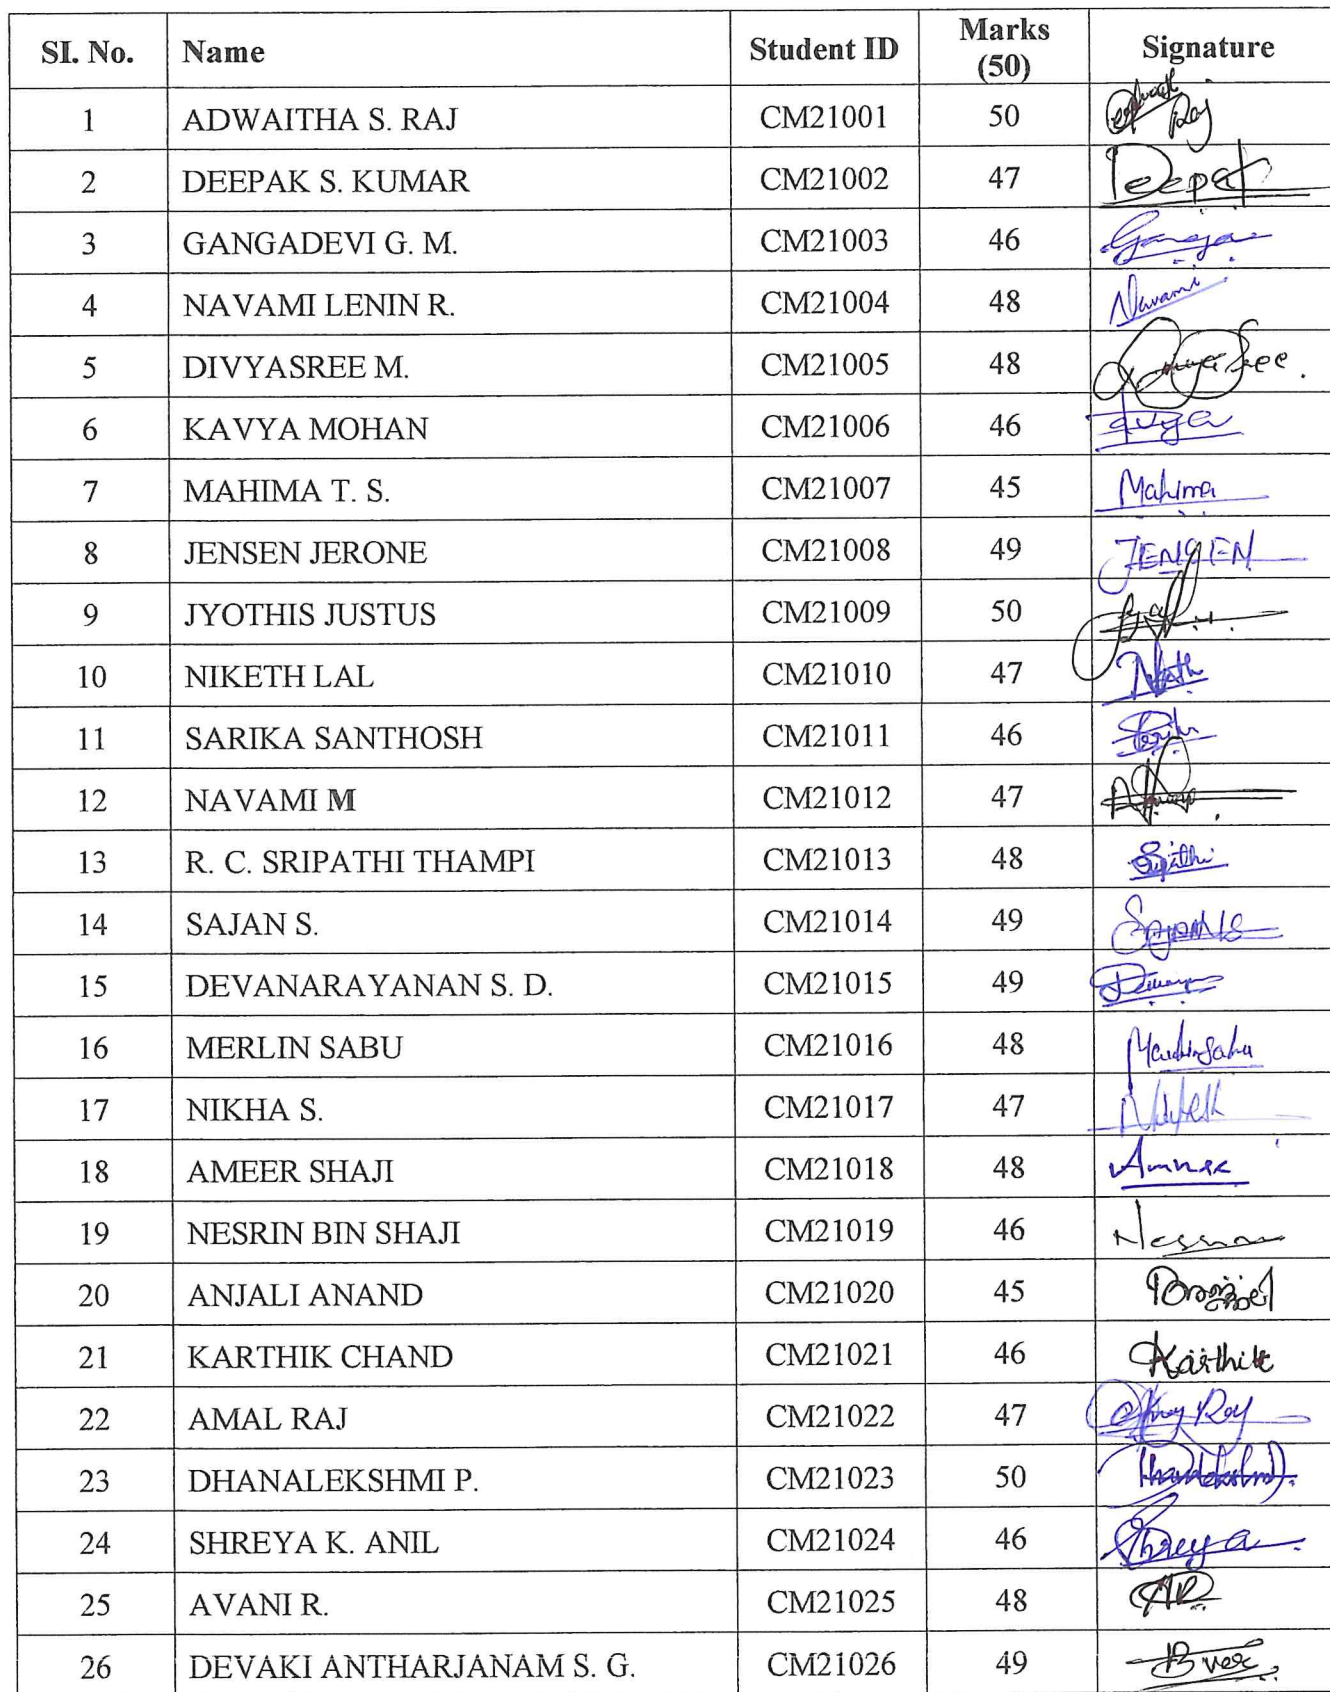 SI. No. Name Student ID Marks (50) Signature
1 ADWAITHA S. RAJ CM21001 50 Raj
2 DEEPAK S. KUMAR CM21002 47 Deepak
3 GANGADEVI G. M. CM21003 46 Ganga
4 NAVAMI LENIN R. CM21004 48 Navami
5 DIVYASREE M. CM21005 48 Divya Sree.
6 KAVYA MOHAN CM21006 46
7 MAHIMA T. S. CM21007 45 Mahima
8 JENSEN JERONE CM21008 49 JENSEN
9 JYOTHIS JUSTUS CM21009 50
10 NIKETH LAL CM21010 47
11 SARIKA SANTHOSH CM21011 46
12 NAVAMI M CM21012 47
13 R. C. SRIPATHI THAMPI CM21013 48
14 SAJAN S. CM21014 49 Sajan S
15 DEVANARAYANAN S. D. CM21015 49
16 MERLIN SABU CM21016 48
17 NIKHA S. CM21017 47
18 AMEER SHAJI CM21018 48
19 NESRIN BIN SHAJI CM21019 46
20 ANJALI ANAND CM21020 45
21 KARTHIK CHAND CM21021 46 Karthik
22 AMAL RAJ CM21022 47
23 DHANALEKSHMI P. CM21023 50
24 SHREYA K. ANIL CM21024 46 Shreya
25 AVANI R. CM21025 48
26 DEVAKI ANTHARJANAM S. G. CM21026 49